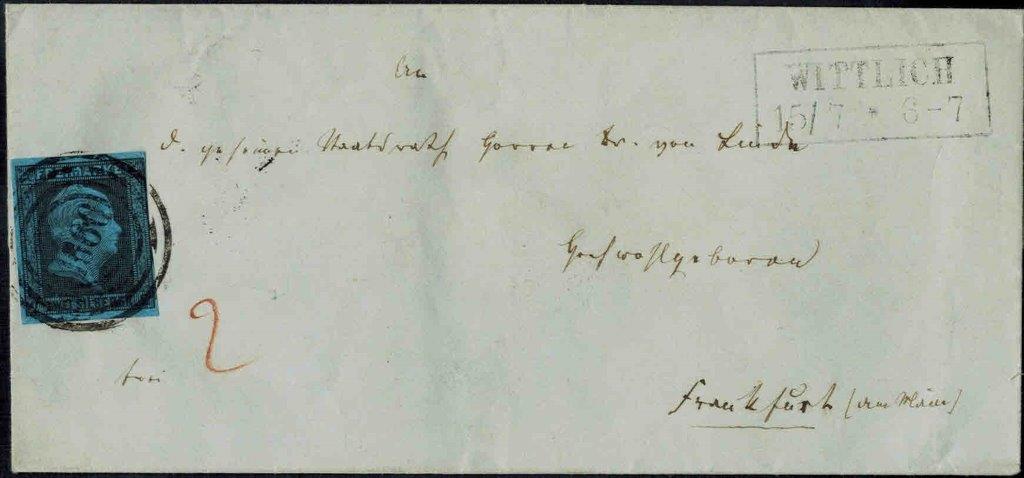 An
WITTLICH
15/7 * 6-7
d. geheimen Staatsrath Herrn Dr. von Linde
FREIMARKE
1660
Hochwohlgeboren
2
frei
Frankfurt (am Main)